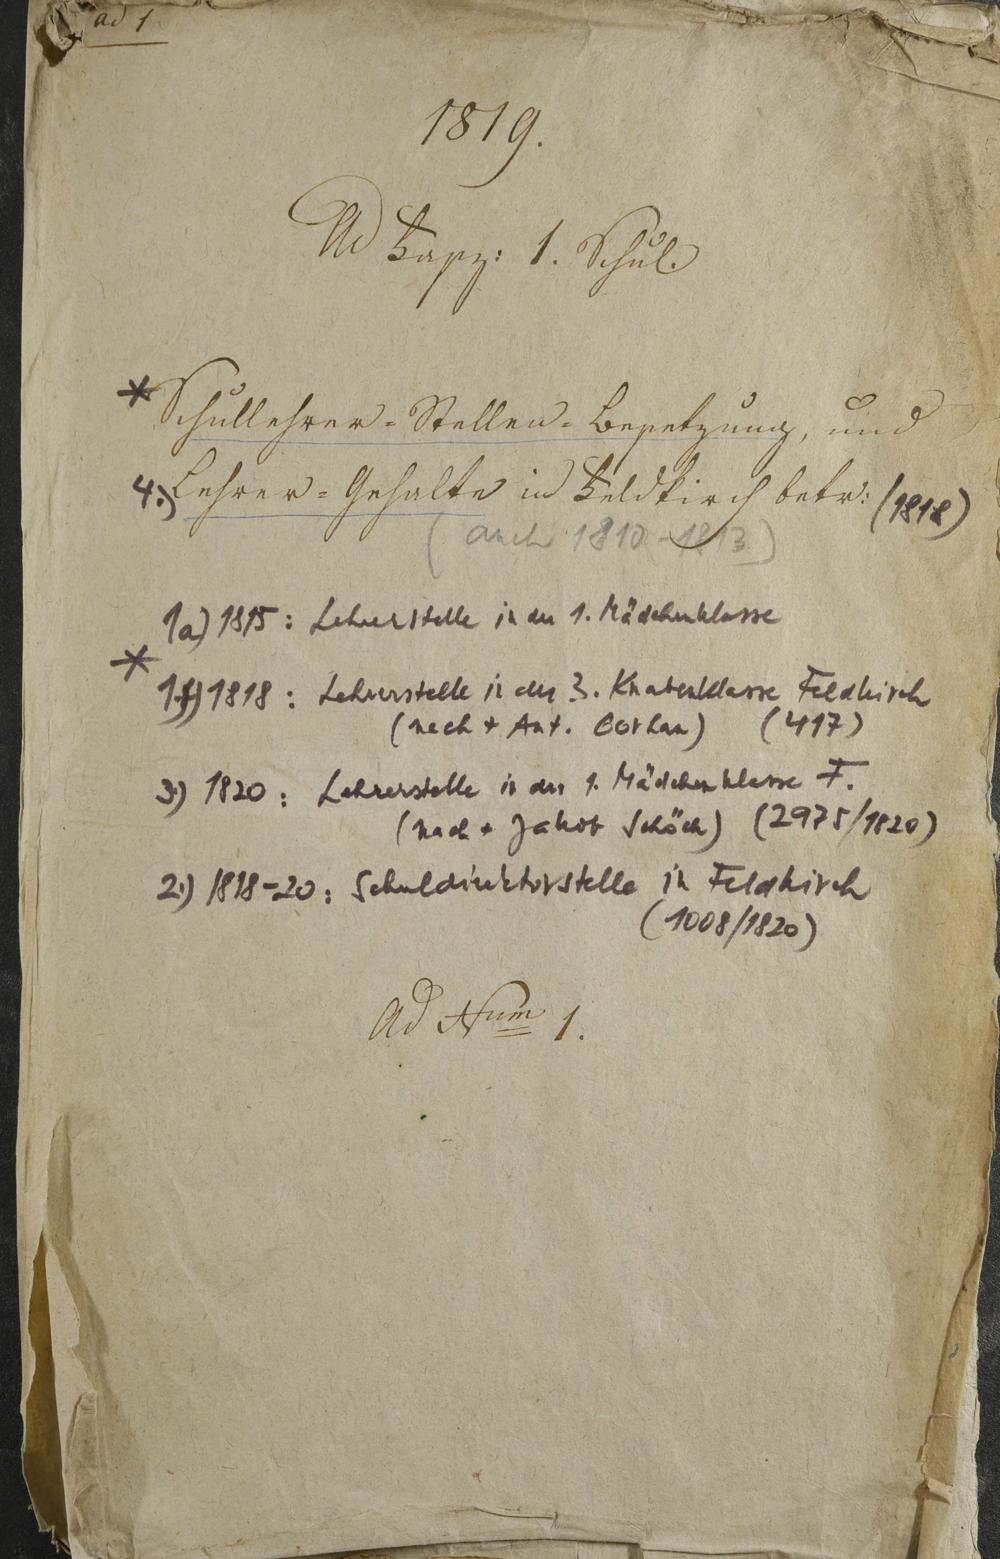 ad 1
1819.
Ad Fasz: 1. Schul.
* Schullehrer-Stellen-Besetzung, und
4.) Lehrer-Gehalte in Feldkirch betr: (1818)
(auch 1810-1813)
1a) 1815: Lehrerstelle in der 1. Mädchenklasse
* 1) 1818: Lehrerstelle in der 3. Knabenklasse Feldkirch
(nach + Ant. ) (417)
3.) 1820: Lehrerstelle in der 1. Mädchenklasse F.
(nach + Jakob Schöch) (2975/1820)
2.) 1818-20: Schuldirektorstelle in Feldkirch
(1008/1820)
Ad Num 1.